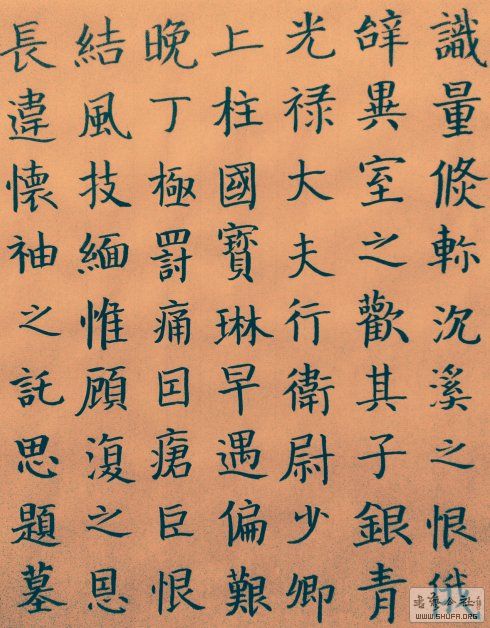 識量倏軫沉溪之恨
辞異室之歡其子銀青
光禄大夫行衛尉少卿
上柱國寶琳早遇偏艱
晚丁極罸痛囙瘡臣恨
結風技緬惟顧復之恩
長違懷袖之託思題墓
WWW.SHUFA.ORG